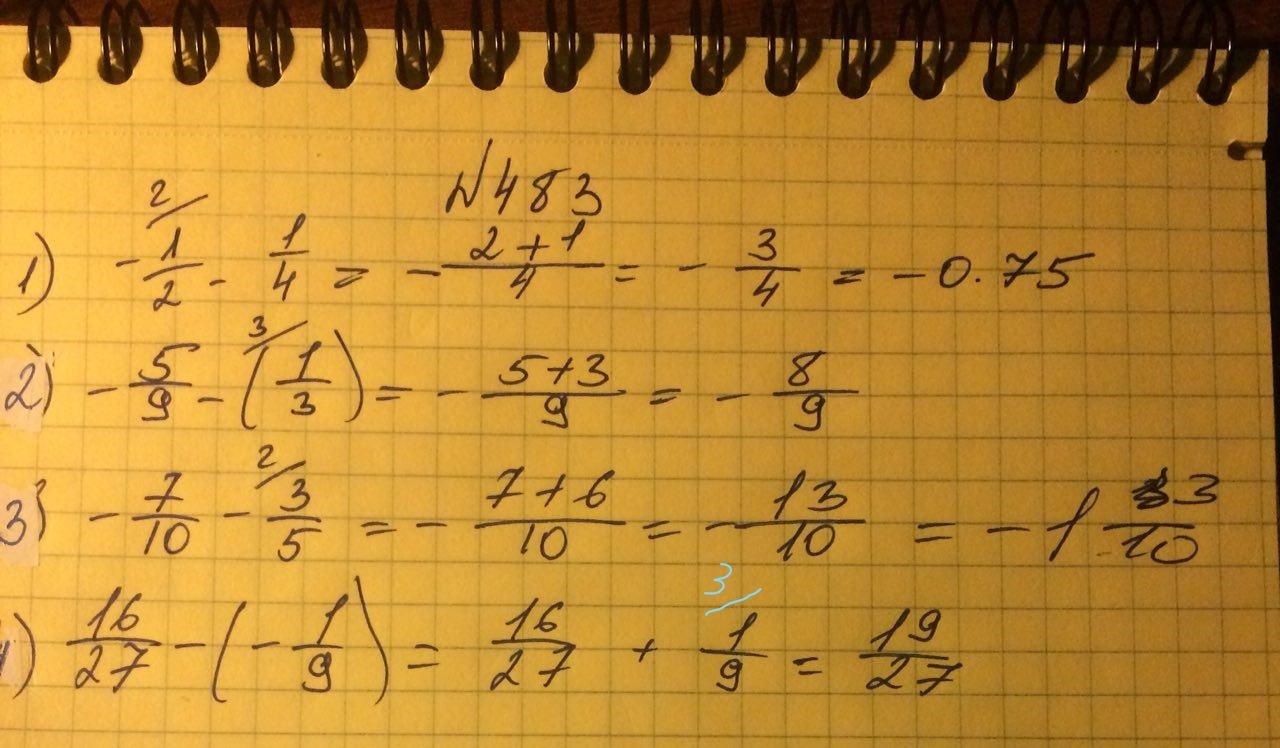 №483
1) -1/2 - 1/4 = - (2+1)/4 = - 3/4 = -0.75
2) - 5/9 - (1/3) = - (5+3)/9 = - 8/9
3) - 7/10 - 3/5 = - (7+6)/10 = - 13/10 = -1 3/10
) 16/27 - (- 1/9) = 16/27 + 1/9 = 19/27